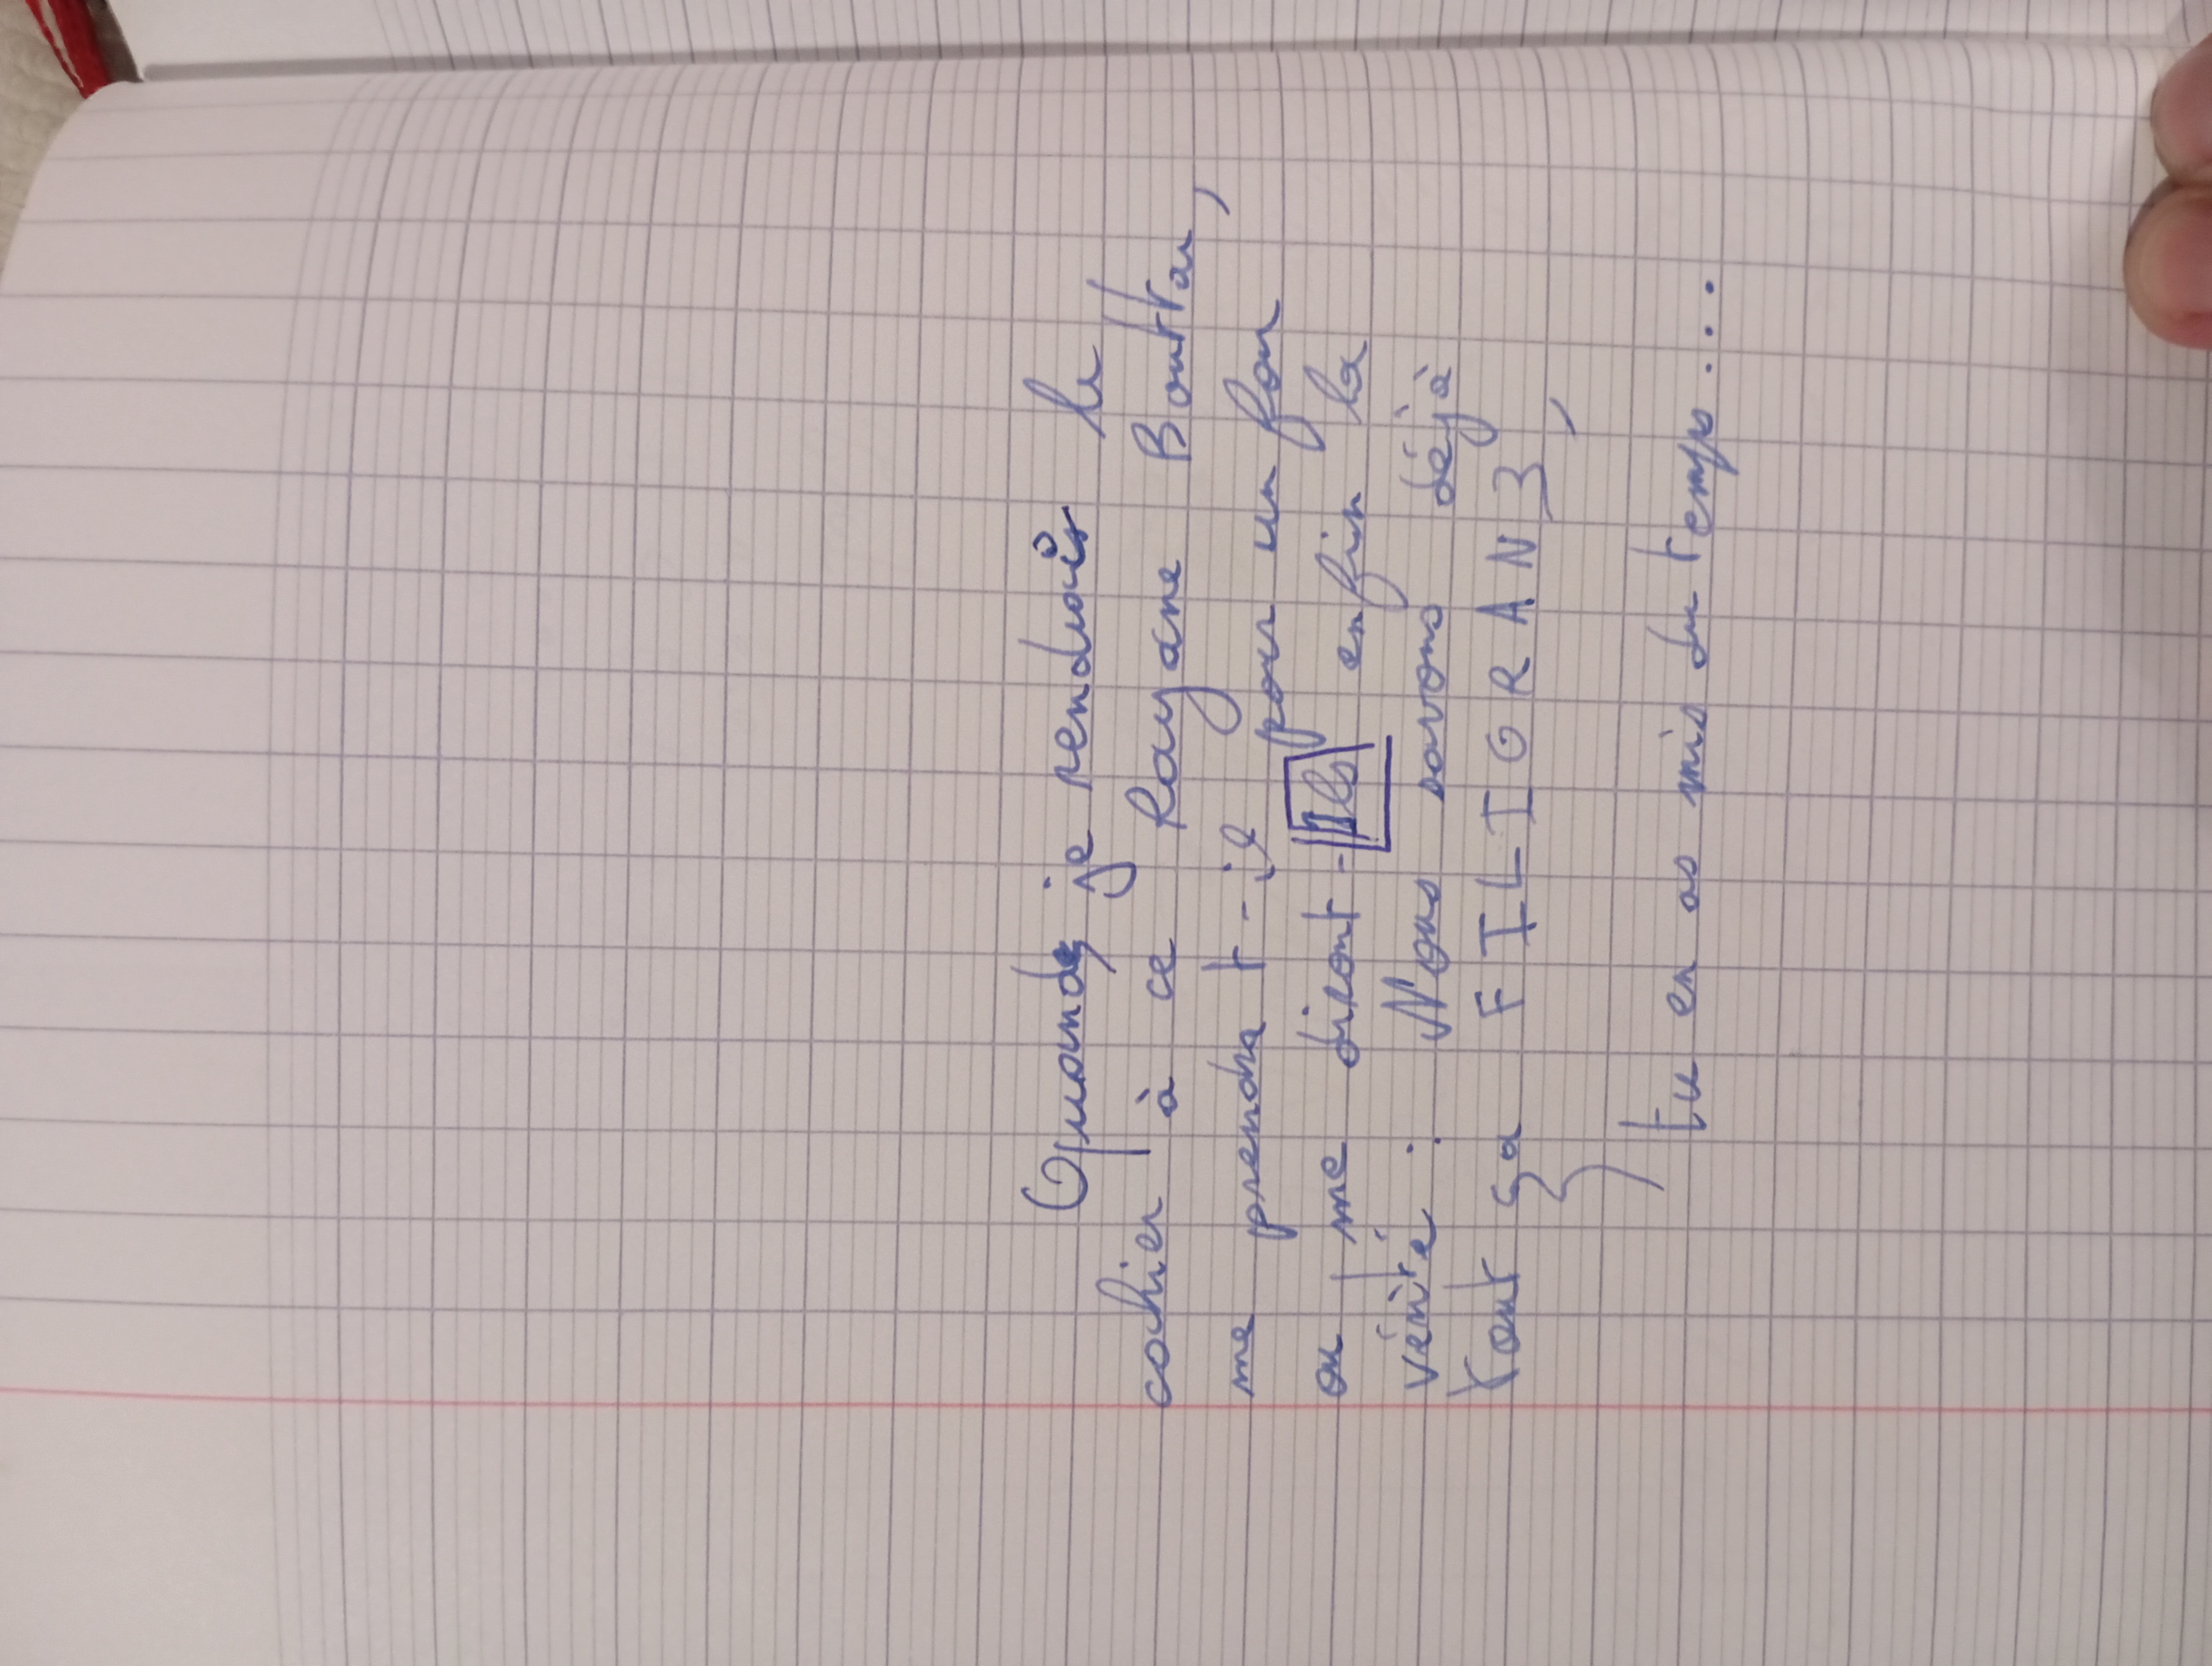 Quand je rendrais le
cahier à ce Rayane Bouttar,
me prendra t-il pour un fou
ou me diront-Ils enfin la
vérité : Nous savons déjà
tout ça FILIGRAN3,
tu en as mis du temps...